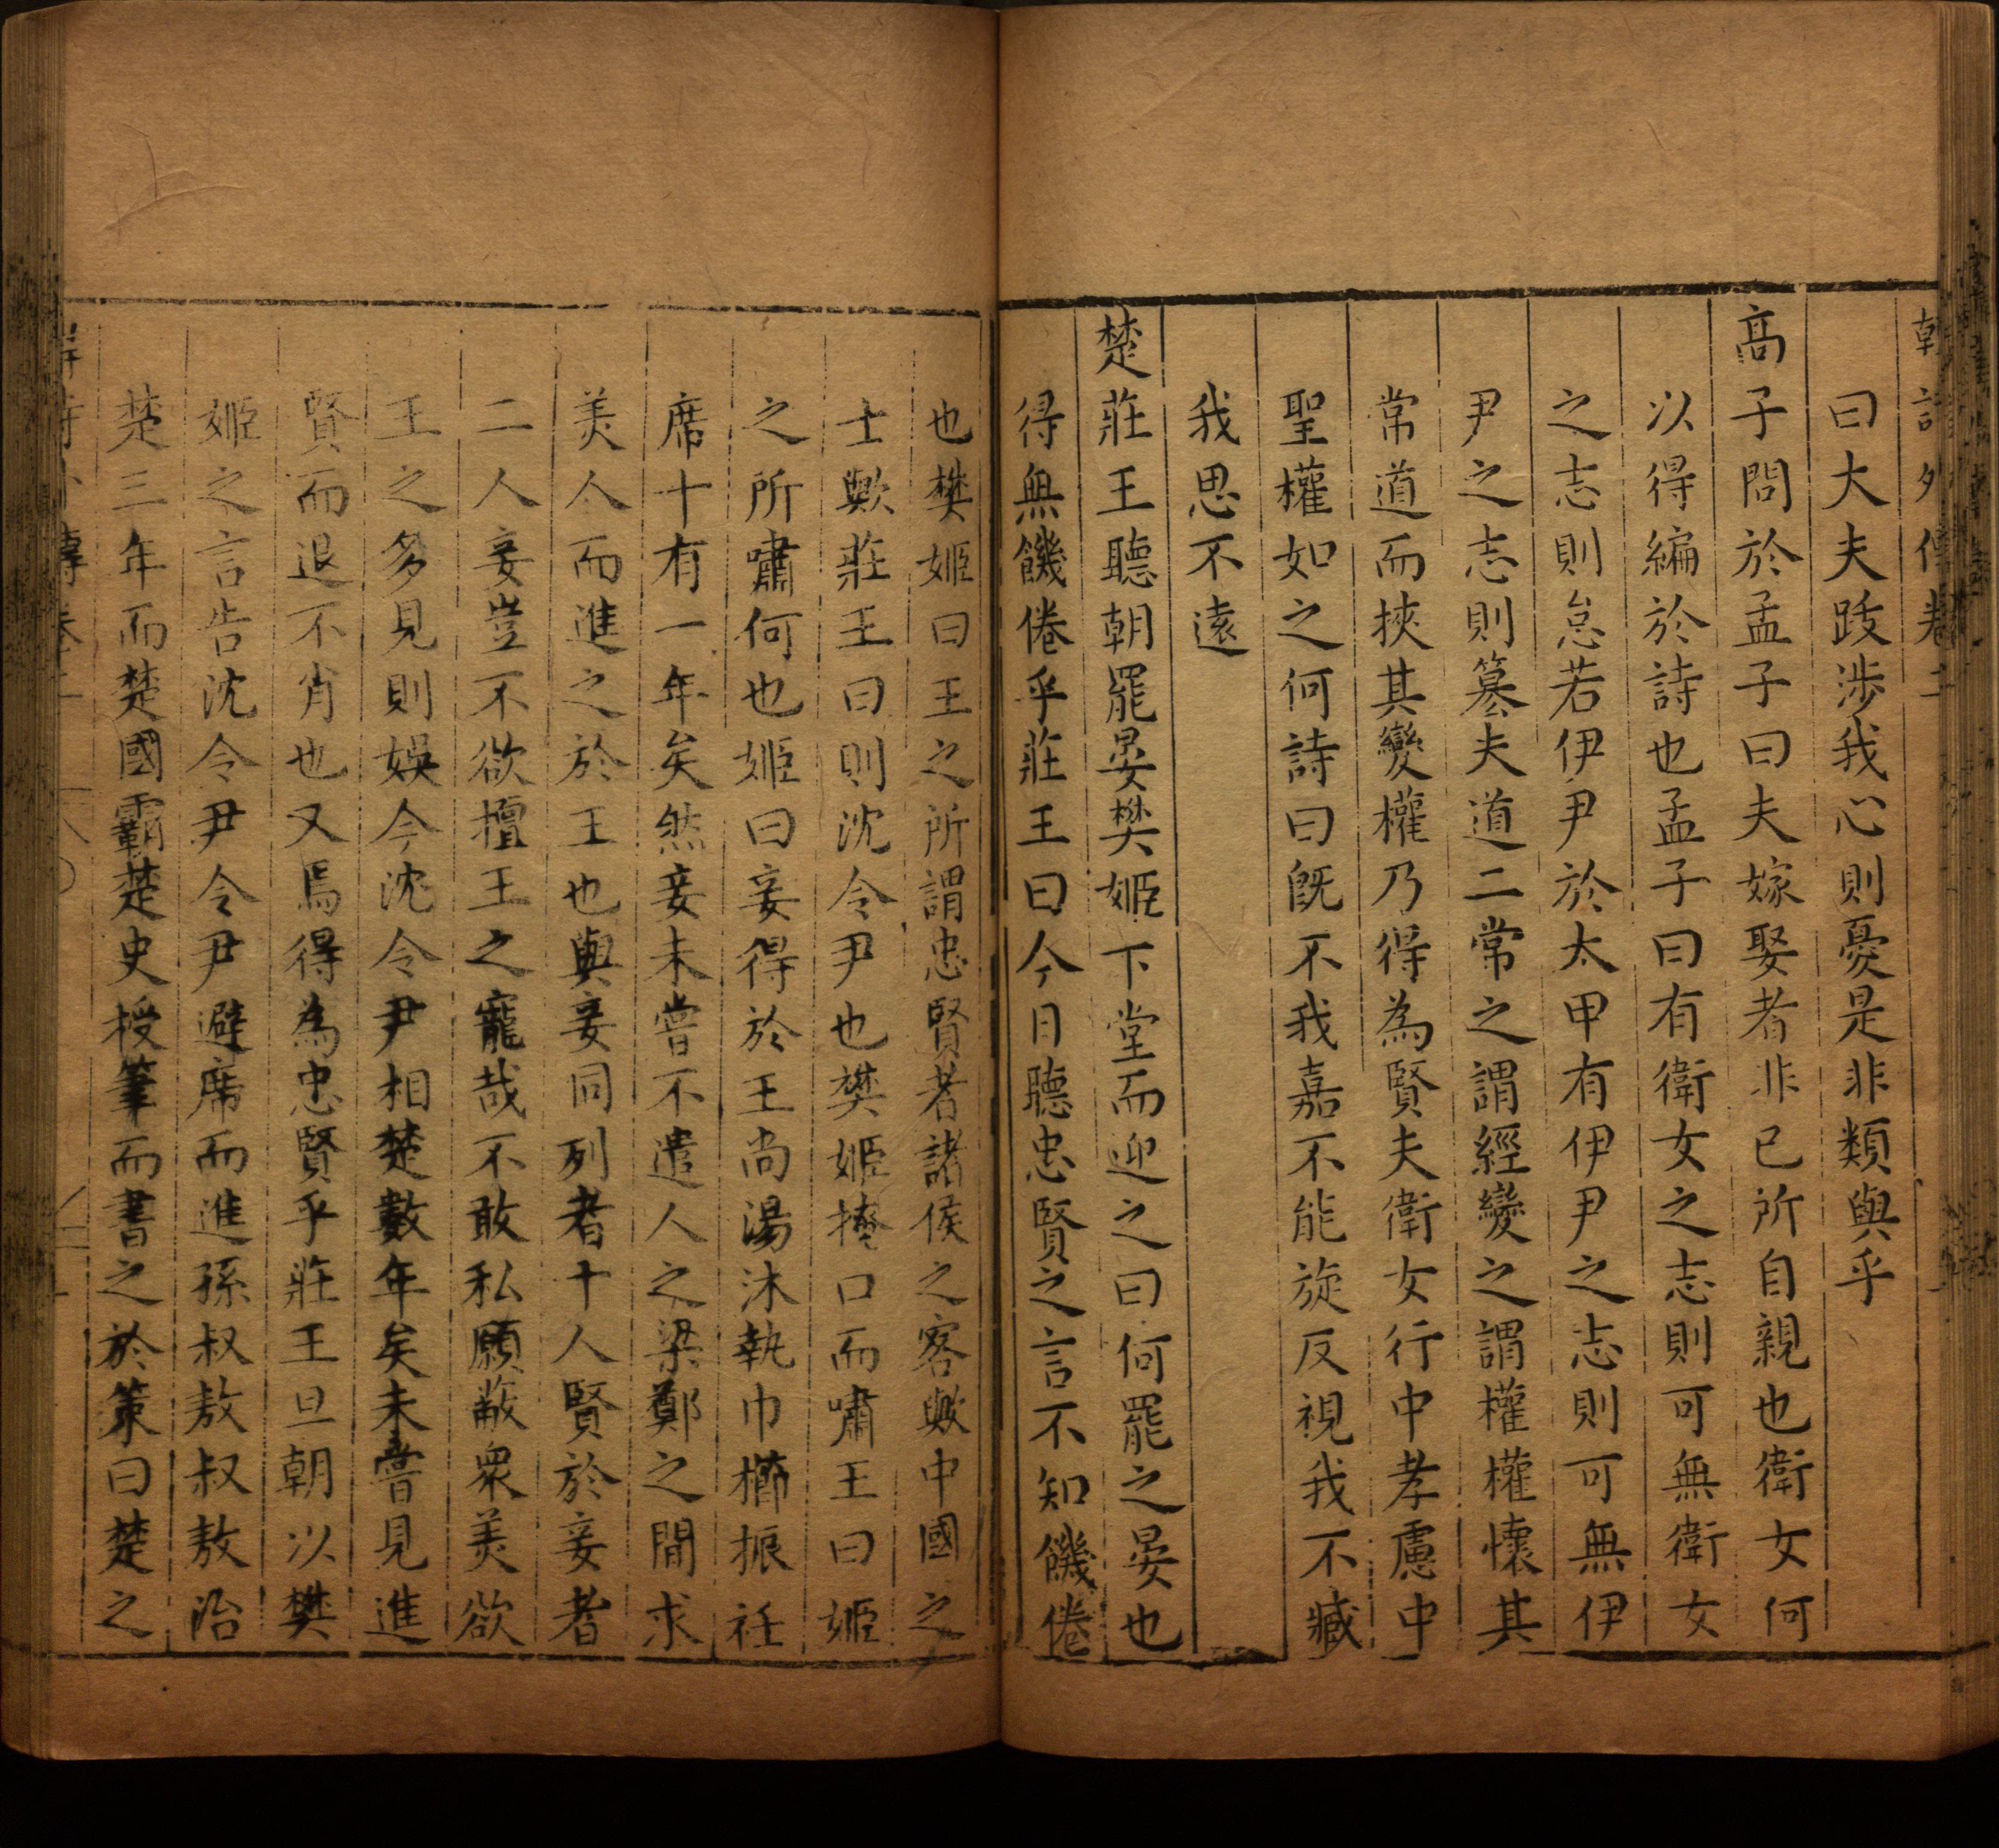 韓詩外傳卷二
曰大夫跋涉我心則憂是非類與乎
髙子問於孟子曰夫嫁娶者非已所自親也衛女何
以得編於詩也孟子曰有衛女之志則可無衛女
之志則怠若伊尹於太甲有伊尹之志則可無伊
尹之志則簒夫道二常之謂經變之謂權權懷其
常道而挾其變權乃得為賢夫衛女行中孝慮中
聖權如之何詩曰旣不我嘉不能旋反視我不臧
我思不遠
楚莊王聽朝罷晏樊姬下堂而迎之曰何罷之晏也
得無饑倦乎莊王曰今日聽忠賢之言不知饑倦
也樊姬曰王之所謂忠賢者諸侯之客歟中國之
士歟莊王曰則沈令尹也樊姬掩口而嘯王曰姬
之所嘯何也姬曰妾得於王尚湯沐執巾櫛振衽
席十有一年矣然妾未嘗不遣人之梁鄭之間求
美人而進之於王也與妾同列者十人賢於妾者
二人妾豈不欲擅王之寵哉不敢私願蔽衆美欲
王之多見則娛今沈令尹相楚數年矣未嘗見進
賢而退不肖也又焉得為忠賢乎莊王旦朝以樊
姬之言告沈令尹令尹避席而進孫叔敖叔敖治
楚三年而楚國霸楚史授筆而書之於策曰楚之